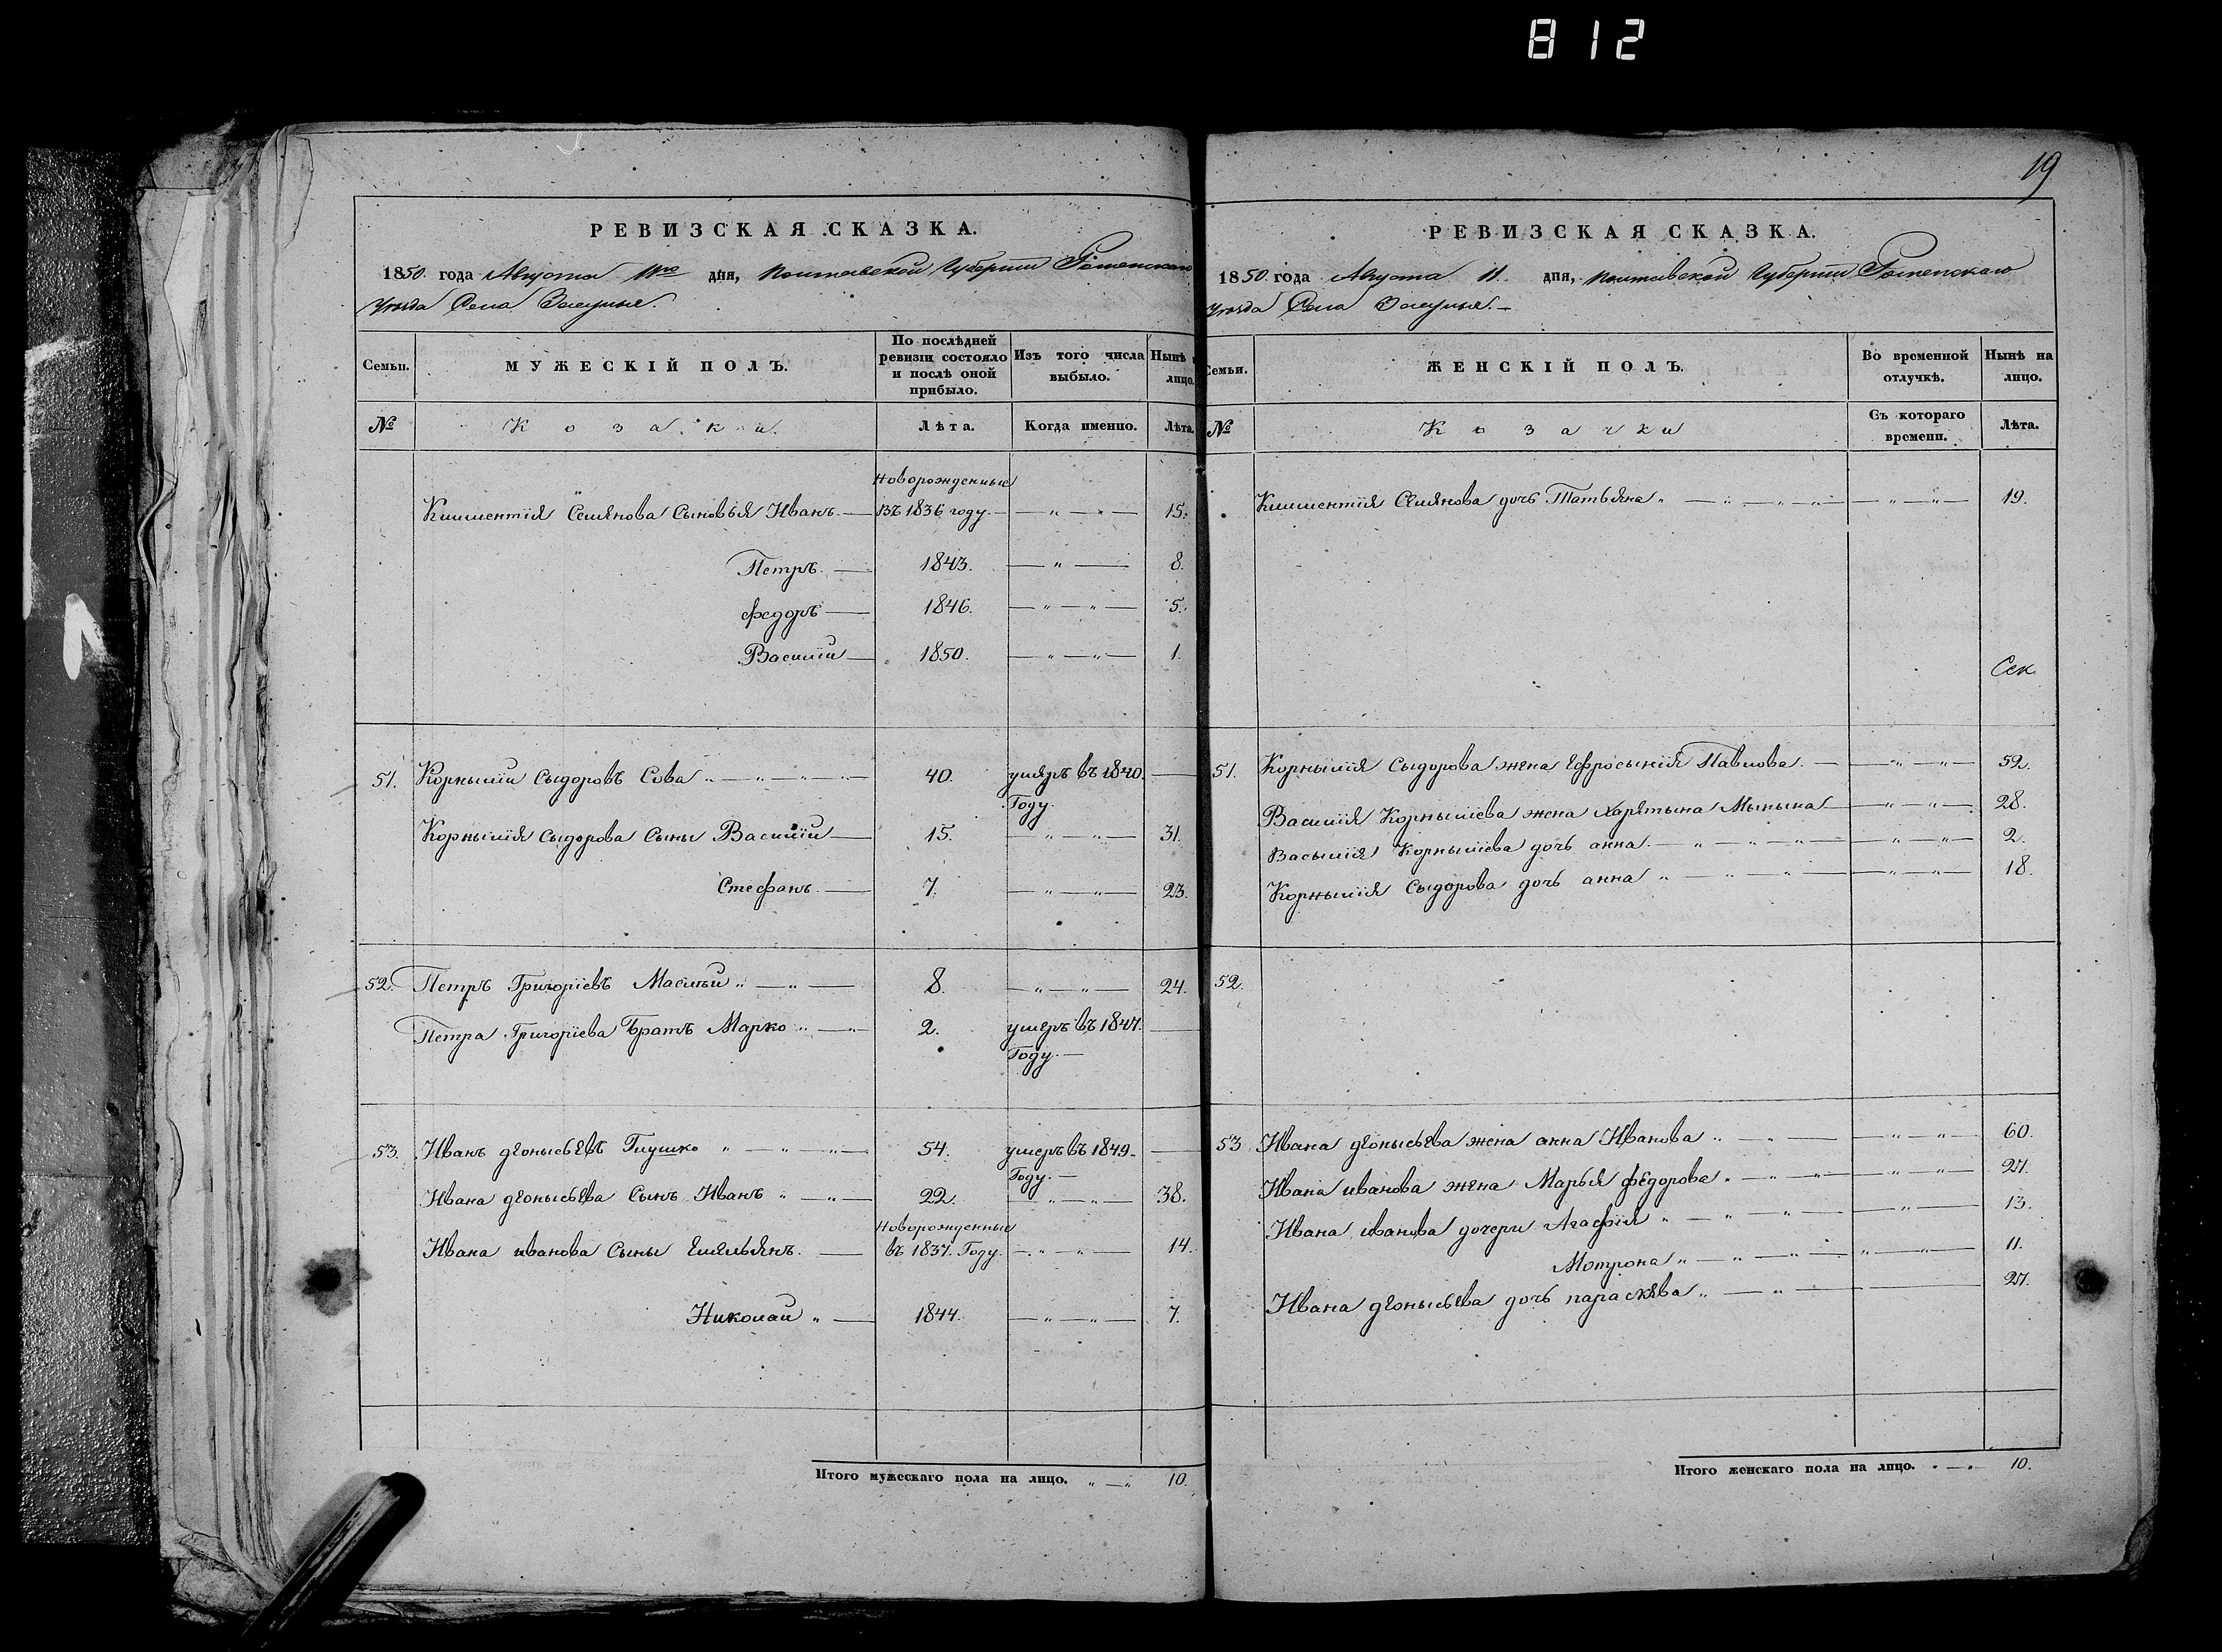 812
19
РЕВИЗСКАЯ СКАЗКА.
1850. года Августа 11го дня, Полтавской Губерніи Роменскаго
Уѣзда Села Засулья.
Семьи.
МУЖЕСКІЙ ПОЛЪ.
По послѣдней ревизіи состояло и послѣ оной прибыло.
Изъ того числа выбыло.
Нынѣ лицо.
№
Козаки.
Лѣта.
Когда именно.
Лѣта.
Новорожденные
Климентія Семянова Сыновья Иванъ — въ 1836 году. — „ — „ — 15.
Петръ. — 1843. — „ — 8.
Федоръ — 1846. — „ — „ — 5.
Василій — 1850. — „ — „ — 1.
51. Корнылій Сыдоровъ Сова „ — „ — „ — „ — 40. умяръ въ 1840. —
Году.
Корнылія Сыдорова Сыны Василій — 15. — „ — „ — 31.
Стефанъ. — 7. — „ — „ — 23.
52. Петръ Григоріевъ Маслый „ — „ — 8. — „ — „ — 24.
Петра Григоріева Братъ Марко „ — „ 2. умяръ въ 1847. —
Году. —
53. Иванъ деонысьевъ Глушко „ — „ — „ — 54. умеръ въ 1849. —
Году. —
Ивана деонысьева Сынъ Иванъ „ — „ — 22. — „ — „ — 38.
Новорожденные
Ивана иванова Сыны Емельянъ. — въ 1837. Году. — „ — „ — 14.
Николай „ — 1844. — „ — „ — 7.
Итого мужескаго пола на лицо. „ — „ 10.
РЕВИЗСКАЯ СКАЗКА.
1850. года Августа 11. дня, Полтавской Губерніи Роменскаго
Уѣзда Села Засулья. —
Семьи.
ЖЕНСКІЙ ПОЛЪ.
Во временной отлучкѣ.
Нынѣ на лицо.
№
Козачки
Съ котораго времени.
Лѣта.
Климентія Семянова дочь Татьяна „ — „ — „ — „ — „ — „ — 19.
Сек
51. Корнылія Сыдорова жена Ефросынія Павлова. — „ — „ — 52.
Василія Корныліева жена Харятына Мынына — „ — „ — 28.
Васылія Корныліева дочь анна. — „ — „ — „ — „ — „ — 2.
Корнылія Сыдорова дочь анна „ — „ — „ — „ — „ — 18.
52.
53 Ивана деонысьева жена анна Иванова „ — „ — „ — „ — 60.
Ивана иванова жена Марья федорова „ — „ — „ — „ — „ — 27.
Ивана иванова дочери Агафія „ — „ — „ — „ — 13.
Мотрона „ — „ — „ — „ — „ — 11.
Ивана деонысьева дочь параскева „ — „ — 27.
Итого женскаго пола на лицо. „ — „ 10.